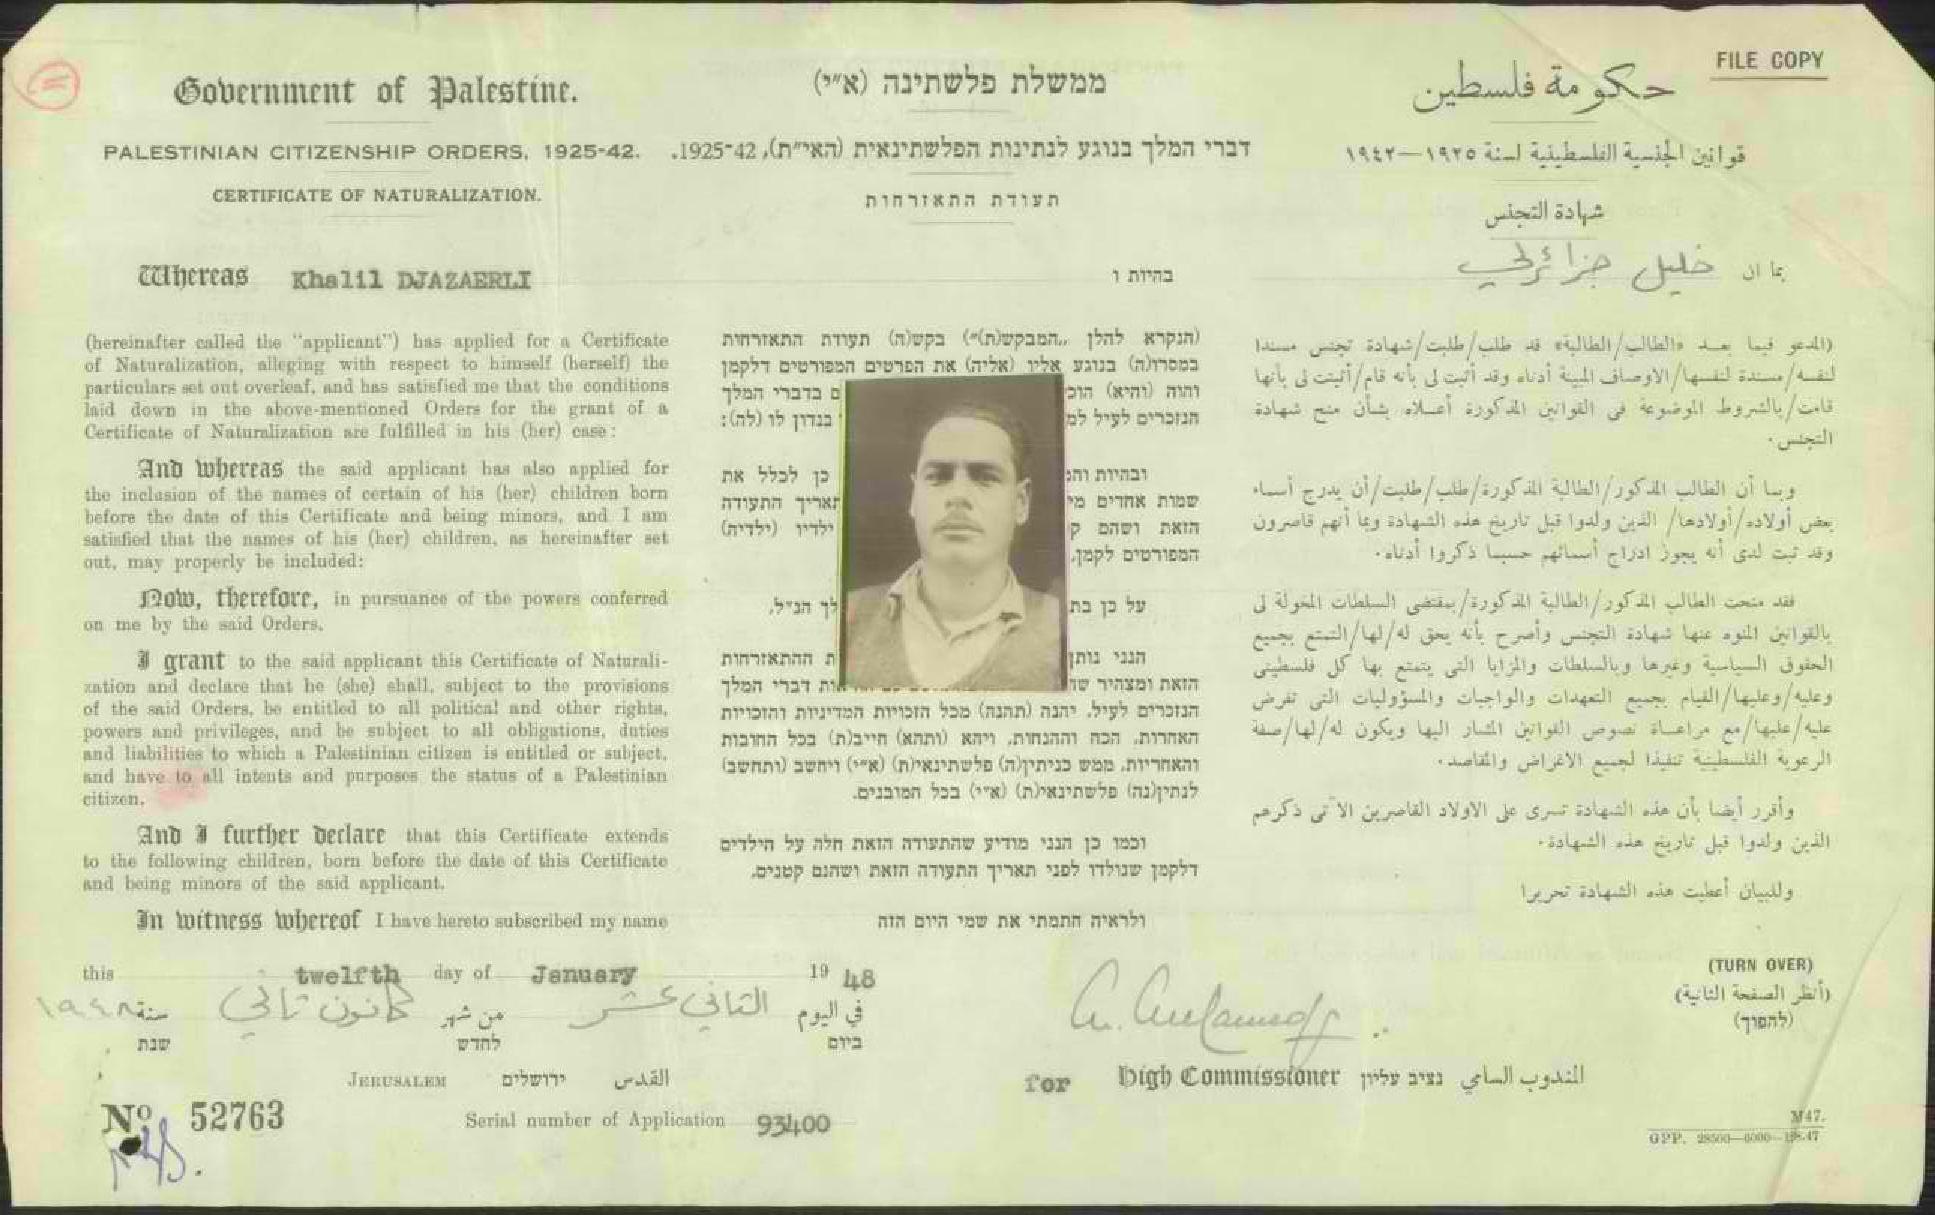 FILE COPY
Government of Palestine.
PALESTINIAN CITIZENSHIP ORDERS, 1925-42.
CERTIFICATE OF NATURALIZATION.
Whereas Khalil DJAZAERLI
(hereinafter called the "applicant") has applied for a Certificate
of Naturalization, alleging with respect to himself (herself) the
particulars set out overleaf, and has satisfied me that the conditions
laid down in the above-mentioned Orders for the grant of a
Certificate of Naturalization are fulfilled in his (her) case:
And whereas the said applicant has also applied for
the inclusion of the names of certain of his (her) children born
before the date of this Certificate and being minors, and I am
satisfied that the names of his (her) children, as hereinafter set
out, may properly be included:
Now, therefore, in pursuance of the powers conferred
on me by the said Orders,
I grant to the said applicant this Certificate of Naturali-
zation and declare that he (she) shall, subject to the provisions
of the said Orders, be entitled to all political and other rights,
powers and privileges, and be subject to all obligations, duties
and liabilities to which a Palestinian citizen is entitled or subject,
and have to all intents and purposes the status of a Palestinian
citizen.
And I further declare that this Certificate extends
to the following children, born before the date of this Certificate
and being minors of the said applicant.
In witness whereof I have hereto subscribed my name
ממשלת פלשתינה (א״י)
דברי המלך בנוגע לנתינות הפלשתינאית (הא״ית), 1925-42.
תעודת התאזרחות
בהיות ו
(הנקרא להלן „המבקש(ת)״) בקש(ה) תעודת התאזרחות
במסרו(ה) בנוגע אליו (אליה) את הפרטים המפורטים דלקמן
והוה (והיא) הוכ ם בדברי המלך
הנזכרים לעיל למ בנדון לו (לה):
ובהיות והמ כן לכלל את
שמות אחדים מי תאריך התעודה
הזאת ושהם ק ילדיו (ילדיה)
המפורטים לקמן,
על כן בת לך הנ״ל,
הנני נותן ת ההתאזרחות
הזאת ומצהיר שה ות דברי המלך
הנזכרים לעיל, יהנה (תהנה) מכל הזכויות המדיניות והזכויות
האחרות, הכח וההנחות, ויהא (ותהא) חייב(ת) בכל החובות
והאחריות, ממש כנתין(ה) פלשתינאי(ת) (א״י) ויחשב (ותחשב)
לנתין(נה) פלשתינאי(ת) (א״י) בכל המובנים.
וכמו כן הנני מודיע שהתעודה הזאת חלה על הילדים
דלקמן שנולדו לפני תאריך התעודה הזאת ושהנם קטנים.
ולראיה חתמתי את שמי היום הזה
حكومة فلسطين
قوانين الجنسية الفلسطينية لسنة ١٩٢٥—١٩٤٢
شهادة التجنس
بما ان خليل جزائرلي
(المدعو فيما بعد «الطالب/الطالبة» قد طلب/طلبت/شهادة تجنس مسندا
لنفسه/مسندة لنفسها/الاوصاف المبينة أدناه وقد أثبت لى بأنه قام/أثبتت لى بأنها
قامت/بالشروط الموضوعة فى القوانين المذكورة أعلاه بشأن منح شهادة
التجنس.
وبما أن الطالب المذكور/الطالبة المذكورة/طلب/طلبت/أن يدرج أسماء
بعض أولاده/أولادها/ الذين ولدوا قبل تاريخ هذه الشهادة وبما أنهم قاصرون
وقد ثبت لدى أنه يجوز ادراج أسمائهم حسبما ذكروا أدناه.
فقد منحت الطالب المذكور/الطالبة المذكورة/بمقتضى السلطات المخولة لى
بالقوانين المنوه عنها شهادة التجنس وأصرح بأنه يحق له/لها/التمتع بجميع
الحقوق السياسية وغيرها وبالسلطات والمزايا التى يتمتع بها كل فلسطينى
وعليه/وعليها/القيام بجميع التعهدات والواجبات والمسؤوليات التى تفرض
عليه/عليها/مع مراعاة نصوص القوانين المشار اليها ويكون له/لها/صفة
الرعوية الفلسطينية تنفيذا لجميع الاغراض والمقاصد.
وأقرر أيضا بأن هذه الشهادة تسرى على الاولاد القاصرين الآتى ذكرهم
الذين ولدوا قبل تاريخ هذه الشهادة.
وللبيان أعطيت هذه الشهادة تحريرا
this twelfth day of January 19 48
في اليوم الثاني عشر من شهر كانون ثاني سنة ١٩٤٨
ביום לחדש שנת
JERUSALEM ירושלים القدس
for High Commissioner נציב עליון المندوب السامي
(TURN OVER)
(أنظر الصفحة الثانية)
(להפוך)
No. 52763
Serial number of Application 93400
M47.